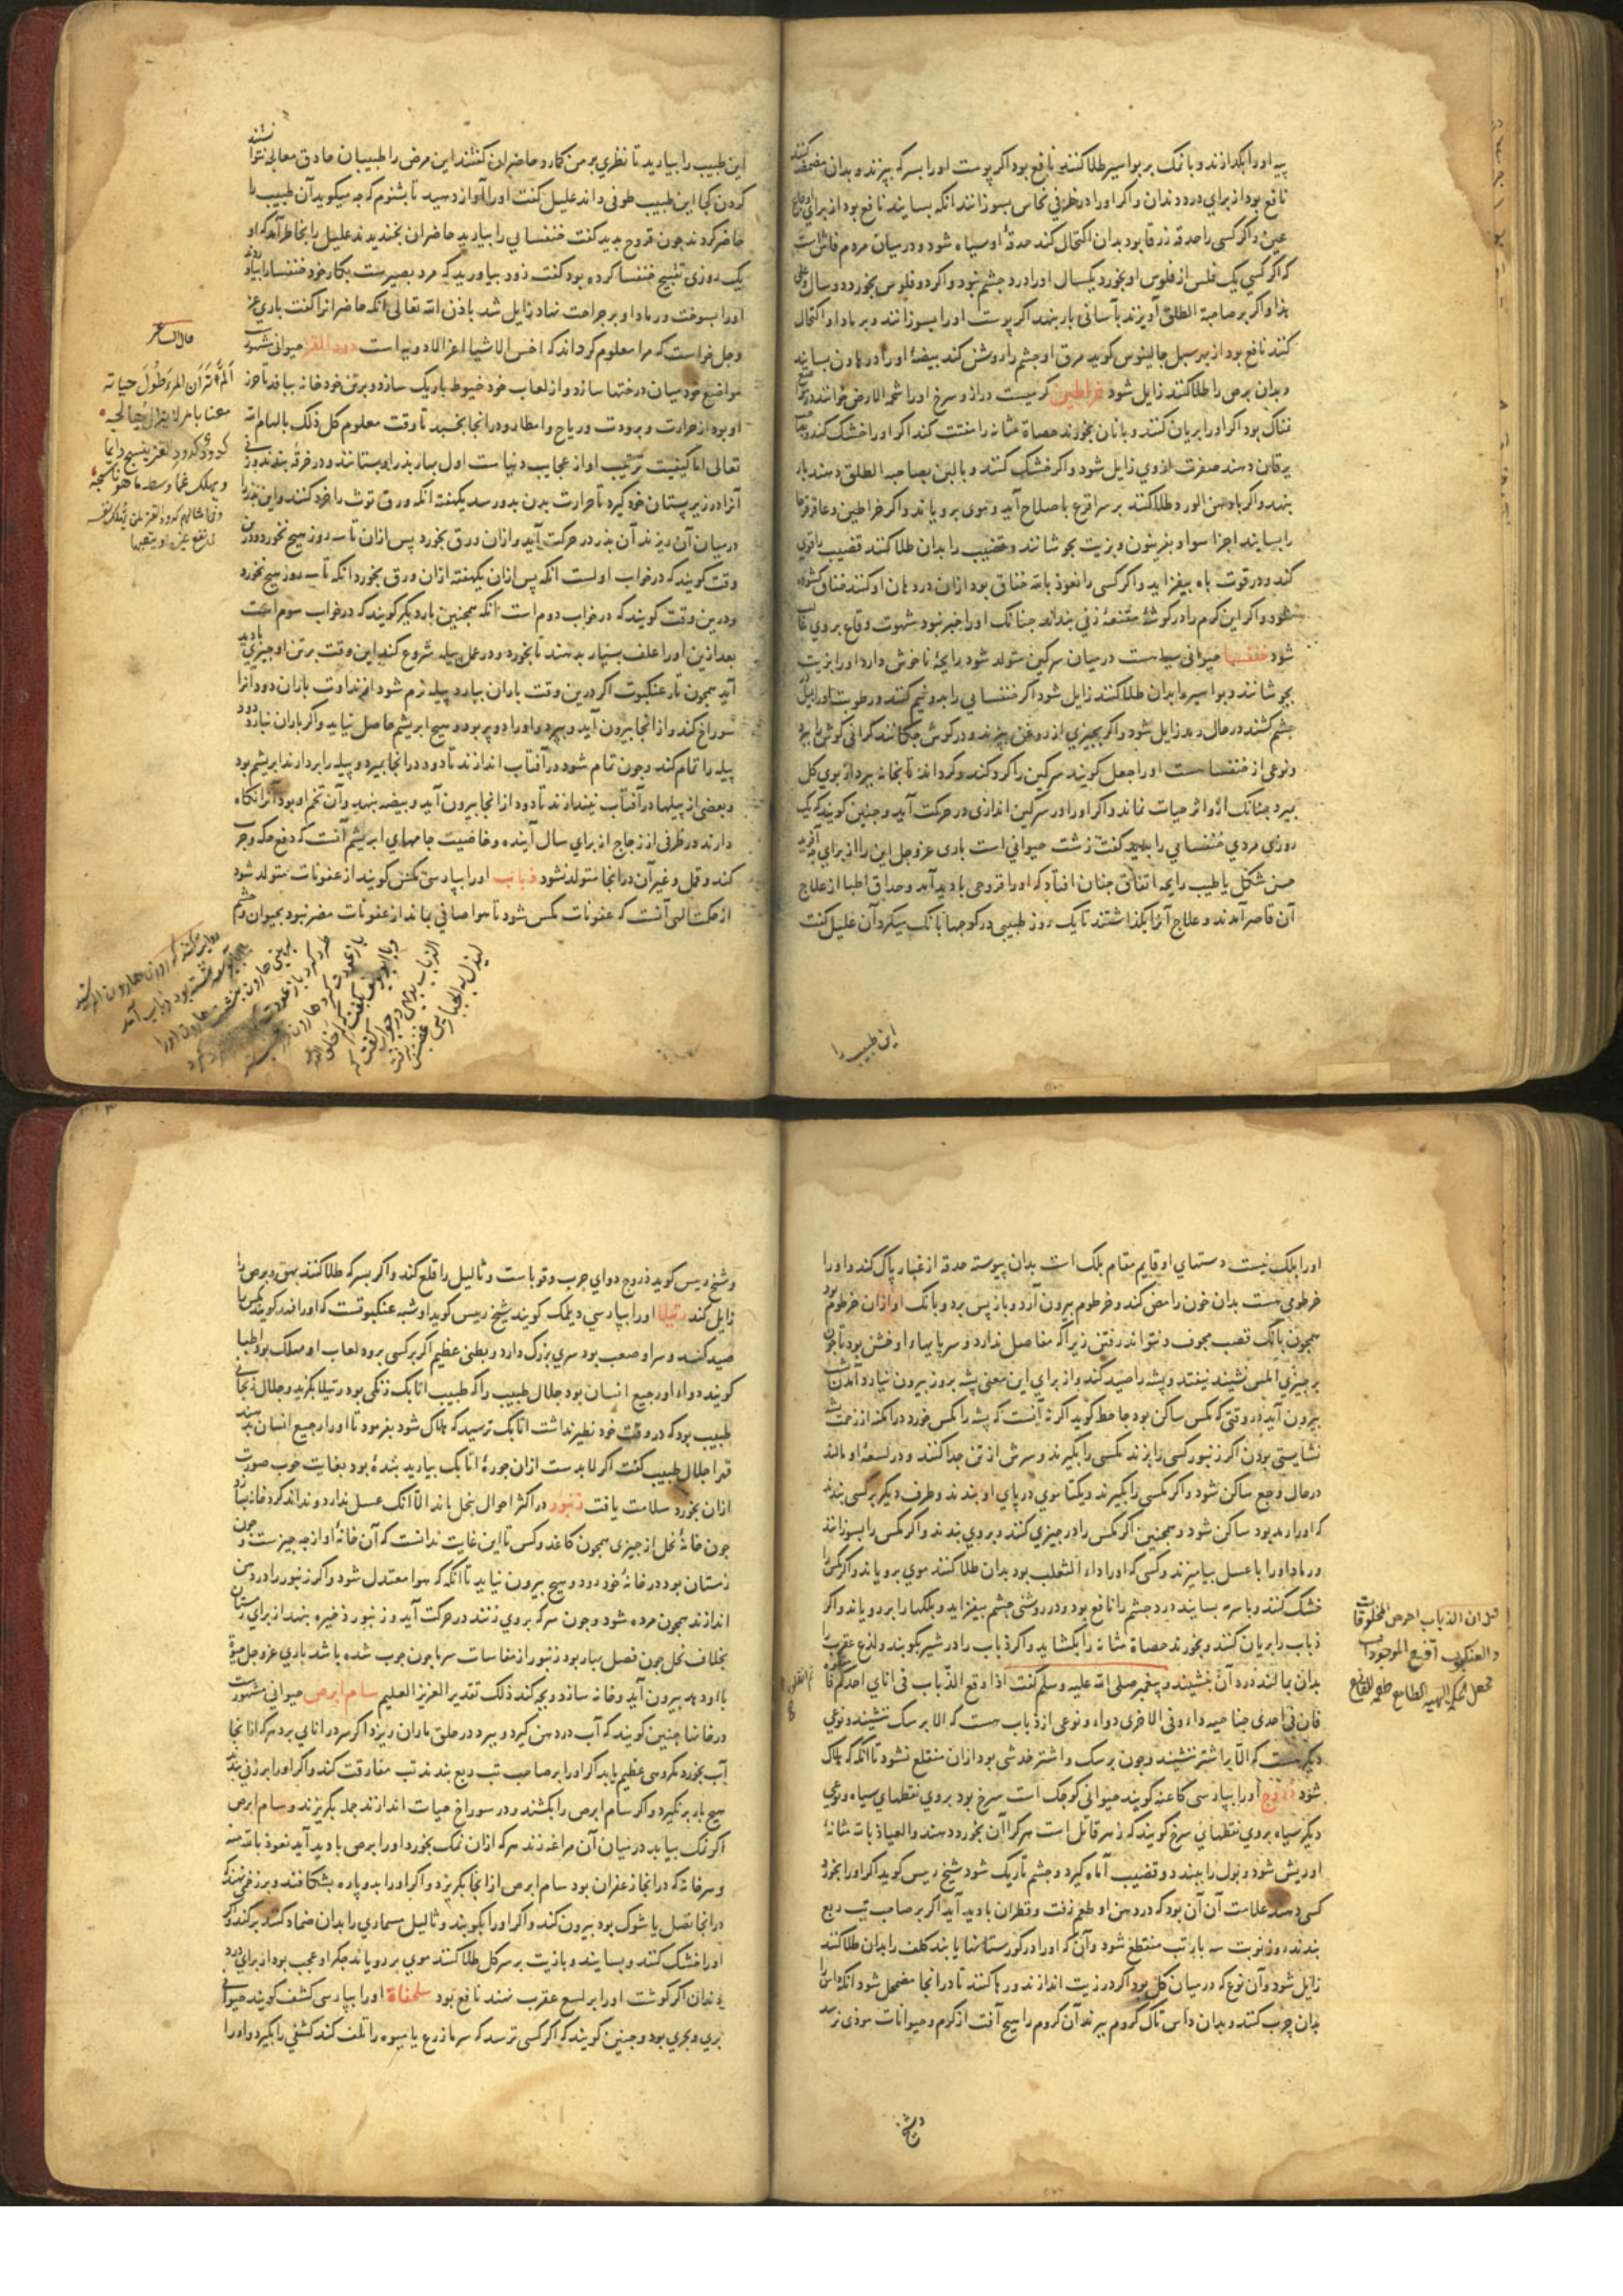 پیه اورا بکدازند و بانک بربواسیر طلا کنند نافع بود اکر پوست اورا بسرکه بپزند و بدان مضمضه کنند
نافع بود از برای درد دندان واکر اورا در ظرفی نحاس بسوزانند انکه بسایند نافع بود از برای
واکر کسی را حدقه زرقا بود بدان اکتحال کند حدقهٔ او سیاه شود و در میان مردم فاش است
که اکر کسی یک فلس از فلوس او بخورد یکسال اورا درد چشم نبود واکر دو فلوس بخورد دو سال
هذا واکر بر صاحبة الطلق آویزند بآسانی بار بنهد اکر پوست اورا بسوزانند و برماد او اکتحال
کنند نافع بود از بهر سبل جالینوس کوید مرق او چشم را روشن کند بیضهٔ اورا در هاون بسایند
و بدان برص را طلا کنند زایل شود خراطین کرمیست دراز و سرخ اورا شحمة الارض خوانند در
نمناک بود اکر اورا بریان کنند و با نان بخورند حصاة مثانه را مفتت کند اکر اورا خشک کنند و
یرقان دهند صفرت از وی زایل شود واکر خشک کنند و با لبن بصاحبه الطلق دهند بار
بنهد واکر با دهن الورد طلا کنند بر سر اقرع باصلاح آید و موی برویاند واکر خراطین و عاقرقرحا
را بسایند اجزا سوا و بفربیون و بزیت بجوشانند و قضیب را بدان طلا کنند قضیب را قوی
کند و در قوت باه بیفزاید واکر کسی را نعوذ بالله خناق بود ازان در دهان او کنند خناق کشوده
شود واکر این کرم را در کوشهٔ مقنعهٔ زنی بندند چنانک اورا خبر نبود شهوت وقاع بر وی غالب
شود خنفسا حیوانی سیاهست در میان سرکین متولد شود رایحهٔ ناخوش دارد اورا بزیت
بجوشانند و بواسیر را بدان طلا کنند زایل شود اکر خنفسایی را بدو نیم کنند و رطوبت اورا
چشم کشند در حال رمد زایل شود واکر بچیزی از روغن بپزند و در کوش چکانند کرانی کوش را ببرد
و نوعی از خنفسا است اورا جعل کویند سرکین را کرد کند و کرداند تا بخانه ببرد از بوی کل
بمیرد چنانک ازو اثر حیات نماند واکر اورا در سرکین اندازی در حرکت آید و چنین کویند که یک
روزی مردی خنفسایی را بدید کفت زشت حیوانی است باری عز وجل این را از برای چه آفرید
حسن شکل یا طیب رایحه اتفاق چنان افتاد که اورا قروحی بادید آمد و حذاق اطبا از علاج
آن قاصر آمدند و علاج آنرا بکذاشتند تا یک روز طبیبی در کوچها بانک میکرد آن علیل کفت
این طبیب را
این طبیب را بیارید تا نظری بر من کمارد حاضران کفتند این مرض را طبیبان حاذق معالجه نتوانستند
کردن کجا این طبیب طوفی داند علیل کفت اورا آواز دهید تا بشنوم که چه میکوید آن طبیب را
حاضر کردند چون قروح بدید کفت خنفسایی را بیارید حاضران بخندیدند علیل را بخاطر آمد که او
یک روزی تقبیح خنفسا کرده بود کفت زود بیاورید که مرد بصیرست بکار خود خنفسا را بیاوردند
اورا بسوخت و رماد او بر جراحت نهاد زایل شد باذن الله تعالی انکه حاضرانرا کفت باری عز
وجل خواست که مرا معلوم کرداند که اخس الاشیا اعز الادویه است دود القز حیوانی مشهور
مواضع خود میان درختها سازد و از لعاب خود خیوط باریک سازد و برتن خود خانه ببافد تا حرز
او بود از حرارت و برودت و ریاح و امطار و در انجا بخسبد تا وقت معلوم کل ذلک بالهام الله
تعالی اما کیفیت ترتیب او از عجایب دنیاست اول بهار بذر او بستانند و در خرقه بندند و زنی
آنرا در زیر پستان خود کیرد تا حرارت بدن بدو رسد یکهفته انکه ورق توث را خرد کنند و این بذر را
درمیان آن ریزند آن بذر در حرکت آید و ازان ورق بخورد پس ازان تا سه روز هیچ نخورد و درین
وقت کویند که در خواب اولست انکه پس ازان یکهفته ازان ورق بخورد انکه تا سه روز هیچ نخورد
و درین وقت کویند که در خواب دوم است انکه همچنین بار دیکر کویند که در خواب سوم است
بعد ازین اورا علف بسیار بدهند تا بخورد و در عمل پیله شروع کند این وقت بر تن او چیزی بادید
آید همچون تار عنکبوت اکر درین وقت باران ببارد پیله نرم شود از نداوت باران دود انرا
سوراخ کند و از انجا بیرون آید و بپرد و اورا دو پر بود و هیچ ابریشم حاصل نیاید واکر باران نبارد دود
پیله را تمام کند و چون تمام شود در آفتاب اندازند تا دود در انجا بمیرد و پیله را بردارند ابریشم بود
و بعضی از پیلها در آفتاب نیندازند تا دود از انجا بیرون آید و بیضه بنهد و آن تخم او بود آنرا نکاه
دارند در ظرفی از زجاج از برای سال آینده و خاصیت جامهای ابریشم آنست که دفع حکه و جرب
کند و قمل و غیر آن در انجا متولد نشود ذباب اورا بپارسی مکس کویند از عفونات متولد شود
از حکمت الهی آنست که عفونات مکس شود تا هوا صافی بماند از عفونات مضر نبود بحیوان و مردم
قال الشاعر
الم تر ان المرء طول حیاته
معنا بامر لا یزال یعالجه
کدود کدود القز ینسج دایما
و یهلک غما وسط ما هو ناسجه
اورا پلک نیست دستهای او قایم مقام پلک است بدان پیوسته حدقه از غبار پاک کند و اورا
خرطومی هست بدان خون را مص کند و خرطوم بیرون آرد و باز پس برد و بانک او ازان خرطوم بود
همچون بانک قصب مجوف و نتواند رفتن زیرا که مفاصل ندارد و سر پایهاء او خشن بود تا چون
بر چیزی املس نشیند نیفتد و پشه را صید کند و از برای این معنی پشه بروز بیرون نیارد آمدن
بیرون آید در وقتی که مکس ساکن بود جاحظ کوید اکر نه آنست که پشه را مکس خورد در امکنه از زحمت پشه
نشایستی بودن اکر زنبور کسی را بزند مکسی را بکیرند و سرش از تن جدا کنند و در لسعهٔ او مالند
در حال وجع ساکن شود واکر مکسی را بکیرند و یکتا موی در پای او بندند و طرف دیکر بر کسی بندند
که اورا رمد بود ساکن شود و همچنین اکر مکس را در چیزی کنند و بروی بندند واکر مکس را بسوزانند
و رماد اورا با عسل بیامیزند و کسی که اورا داء الثعلب بود بدان طلا کنند موی برویاند واکر مکس را
خشک کنند و با سرمه بسایند درد چشم را نافع بود و در روشنی چشم بیفزاید و پلکها را برویاند واکر
ذباب را بریان کنند و بخورند حصاة مثانه را بکشاید واکر ذباب را در شیر بکوبند و لذع عقرب را
بدان بمالند درد آن بنشیند و پیغمبر صلی الله علیه وسلم کفت اذا وقع الذباب فی انای احدکم
فان فی احدی جناحیه داء و فی الاخری دواء و نوعی از ذباب هست که الا بر سک ننشیند و نوعی
دیکر هست که الا بر اشتر ننشیند و چون بر سک و اشتر خدشی بود ازان منقلع نشود تا انکه که هلاک
شود ذروح اورا بپارسی کاغنه کویند حیوانی کوچک است سرخ بود بروی نقطهای سیاه و نوعی
دیکر سیاه بروی نقطهای سرخ کویند که زهر قاتل است هرکرا آن بخورد دهند والعیاذ بالله مثانهٔ
او ریش شود و بول را ببندد و قضیب آماه کیرد و چشم تاریک شود شیخ رییس کوید اکر اورا بخورد
کسی دهند علامت آن آن بود که در دهن او طعم زفت و قطران بادید آید اکر بر صاحب تب ربع
بندند روز نوبت سه بار تب منقطع شود و آن که اورا در کورستانها یابند کلف را بدان طلا کنند
زایل شود و آن نوع که درمیان کل بود اکر در زیت اندازند و رها کنند تا در انجا مضمحل شود انکه داس را
بدان چرب کنند و بدان داس تاک کروم ببرند آن کروم را هیچ آفت از کرم و حیوانات موذی نرسد
و شیخ
قیل ان الذباب احرص المخلوقات
والعنکبوت اقنع الموجودات
و شیخ رییس کوید ذروح دوای جرب و قوباست و ثالیل را قلع کند واکر بسرکه طلا کنند بهق و برص را
زایل کند رتیلا اورا بپارسی دیلمک کویند شیخ رییس کوید او شبه عنکبوتست که اورا فهد کویند مکس را
صید کند و سر او صعب بود سری بزرک دارد و بطنی عظیم اکر بر کسی برود لعاب او مهلک بود اطبا
کویند دواء او رجیع انسان بود جلال طبیب را که طبیب اتابک زنکی بود رتیلا بکزید و جلال زنجانی
طبیب بود که در وقت خود نظیر نداشت اتابک ترسید که هلاک شود بفرمود تا اورا رجیع انسان بدهند
قدا جلال طبیب کفت اکر لابدست ازان جورهٔ اتابک بیارید بندهٔ بود بغایت خوب صورت
ازان بخورد سلامت یافت زنبور در اکثر احوال بنحل ماند الا آنک عسل ندارد و نداند کرد خانه سازد
چون خانهٔ نحل از چیزی همچون کاغد و کس تا این غایت ندانست که آن خانهٔ او از چه چیزست و چون
زمستان بود در خانهٔ خود رود و هیچ بیرون نیاید تا انکه که هوا معتدل شود واکر زنبور را در دهن
اندازند همچون مرده شود و چون سرکه بروی زنند در حرکت آید و زنبور ذخیره بنهد از برای زمستان
بخلاف نحل چون فصل بهار بود زنبور از مقاسات سرما چون چوب شده باشد باری عز وجل حیوة
با او دهد بیرون آید و خانه سازد و بچه کند ذلک تقدیر العزیز العلیم سام ابرص حیوانی مشهورست
در خانها چنین کویند که آب در دهن کیرد و ببرد در حلق ماران ریزد اکر سر در انایی برد هرکه از انجا
آب بخورد مکروهی عظیم یابد اکر اورا بر صاحب تب ربع بندند تب مفارقت کند واکر اورا بر زنی بندند
هیچ بار برنکیرد واکر سام ابرص را بکشند و در سوراخ حیات اندازند جمله بکریزند و سام ابرص
اکر نمک بیابد درمیان آن مراغه زند هرکه ازان نمک بخورد اورا برص بادید آید نعوذ بالله منه
و هر خانه که در انجا زعفران بود سام ابرص از انجا بکریزد واکر اورا بدو پاره بشکافند و بر زخمی نهند که
در انجا نصل یا شوک بود بیرون کند واکر اورا بکوبند و ثالیل مسماری را بدان ضماد کنند برکند واکر
اورا خشک کنند و بسایند و با زیت بر سر کل طلا کنند موی برویاند جکر او عجب بود از برای درد
دندان اکر کوشت اورا بر لسع عقرب نهند نافع بود سلحفاة اورا بپارسی کشف کویند حیوانی
بری و بحری بود و چنین کویند که اکر کسی ترسد که سرما زرع یا میوه را تلف کند کشفی را بکیرد و اورا